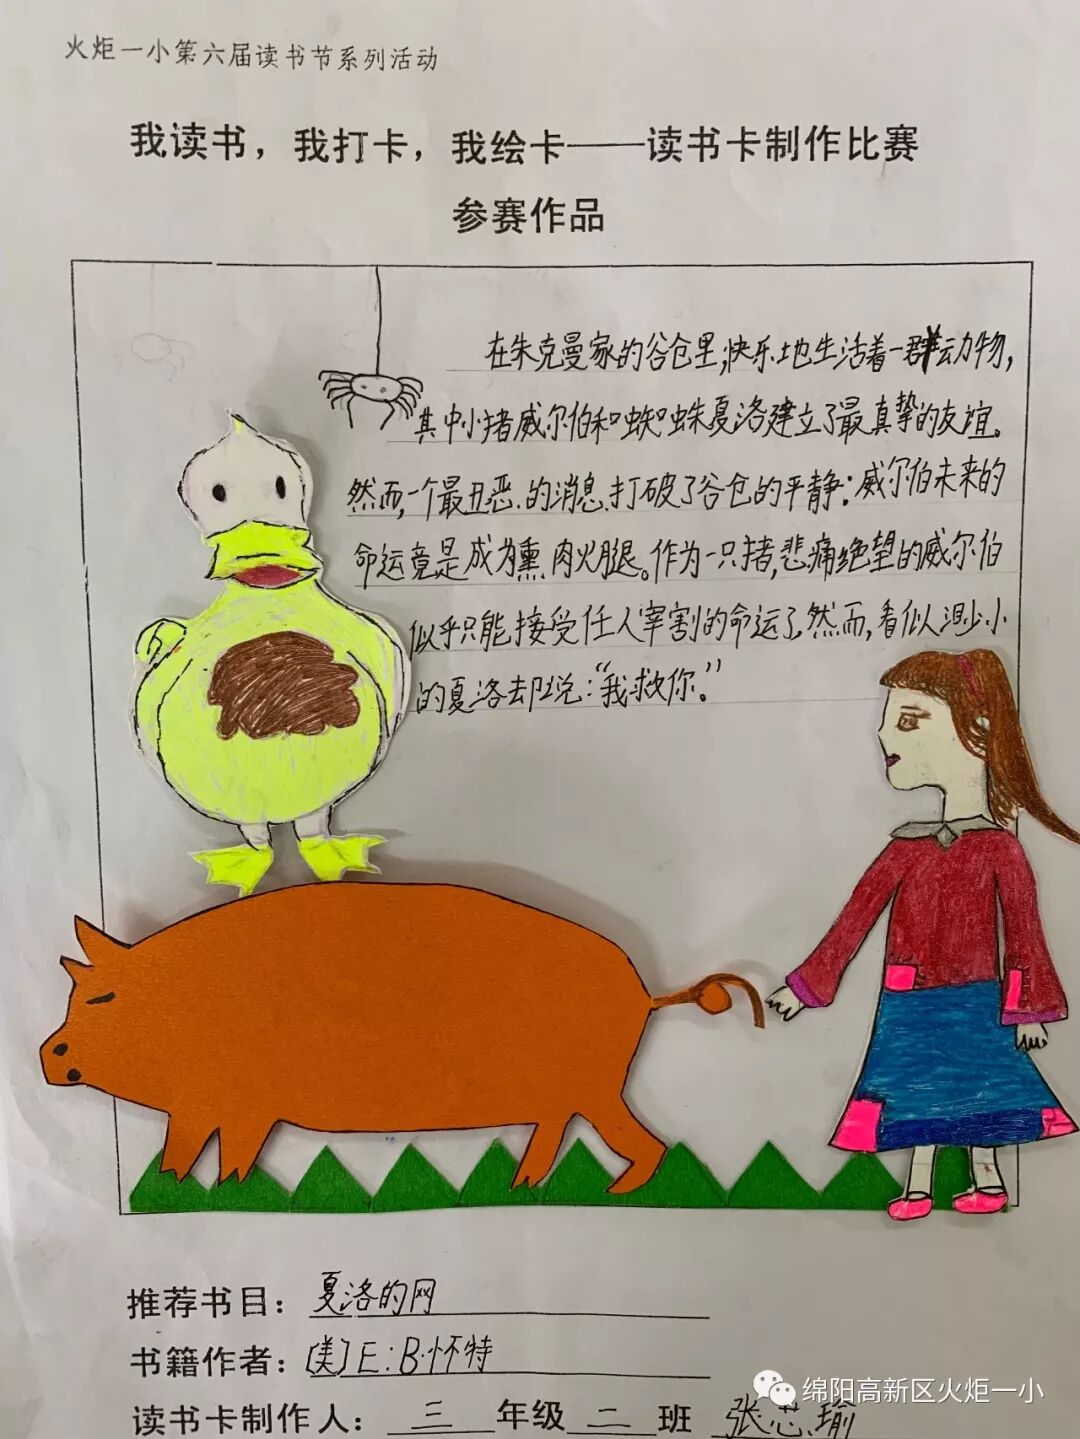 火炬一小第六届读书节系列活动
我读书，我打卡，我绘卡——读书卡制作比赛
参赛作品
在朱克曼家的谷仓里，快乐地生活着一群动物，
其中小猪威尔伯和蜘蛛夏洛建立了最真挚的友谊。
然而，一个最丑恶的消息打破了谷仓的平静：威尔伯未来的
命运竟是成为熏肉火腿。作为一只猪，悲痛绝望的威尔伯
似乎只能接受任人宰割的命运了，然而，看似渺小
的夏洛却说：“我救你。”
推荐书目：夏洛的网
书籍作者：〔美〕E：B·怀特
读书卡制作人：三年级二班 张芯瑜
绵阳高新区火炬一小